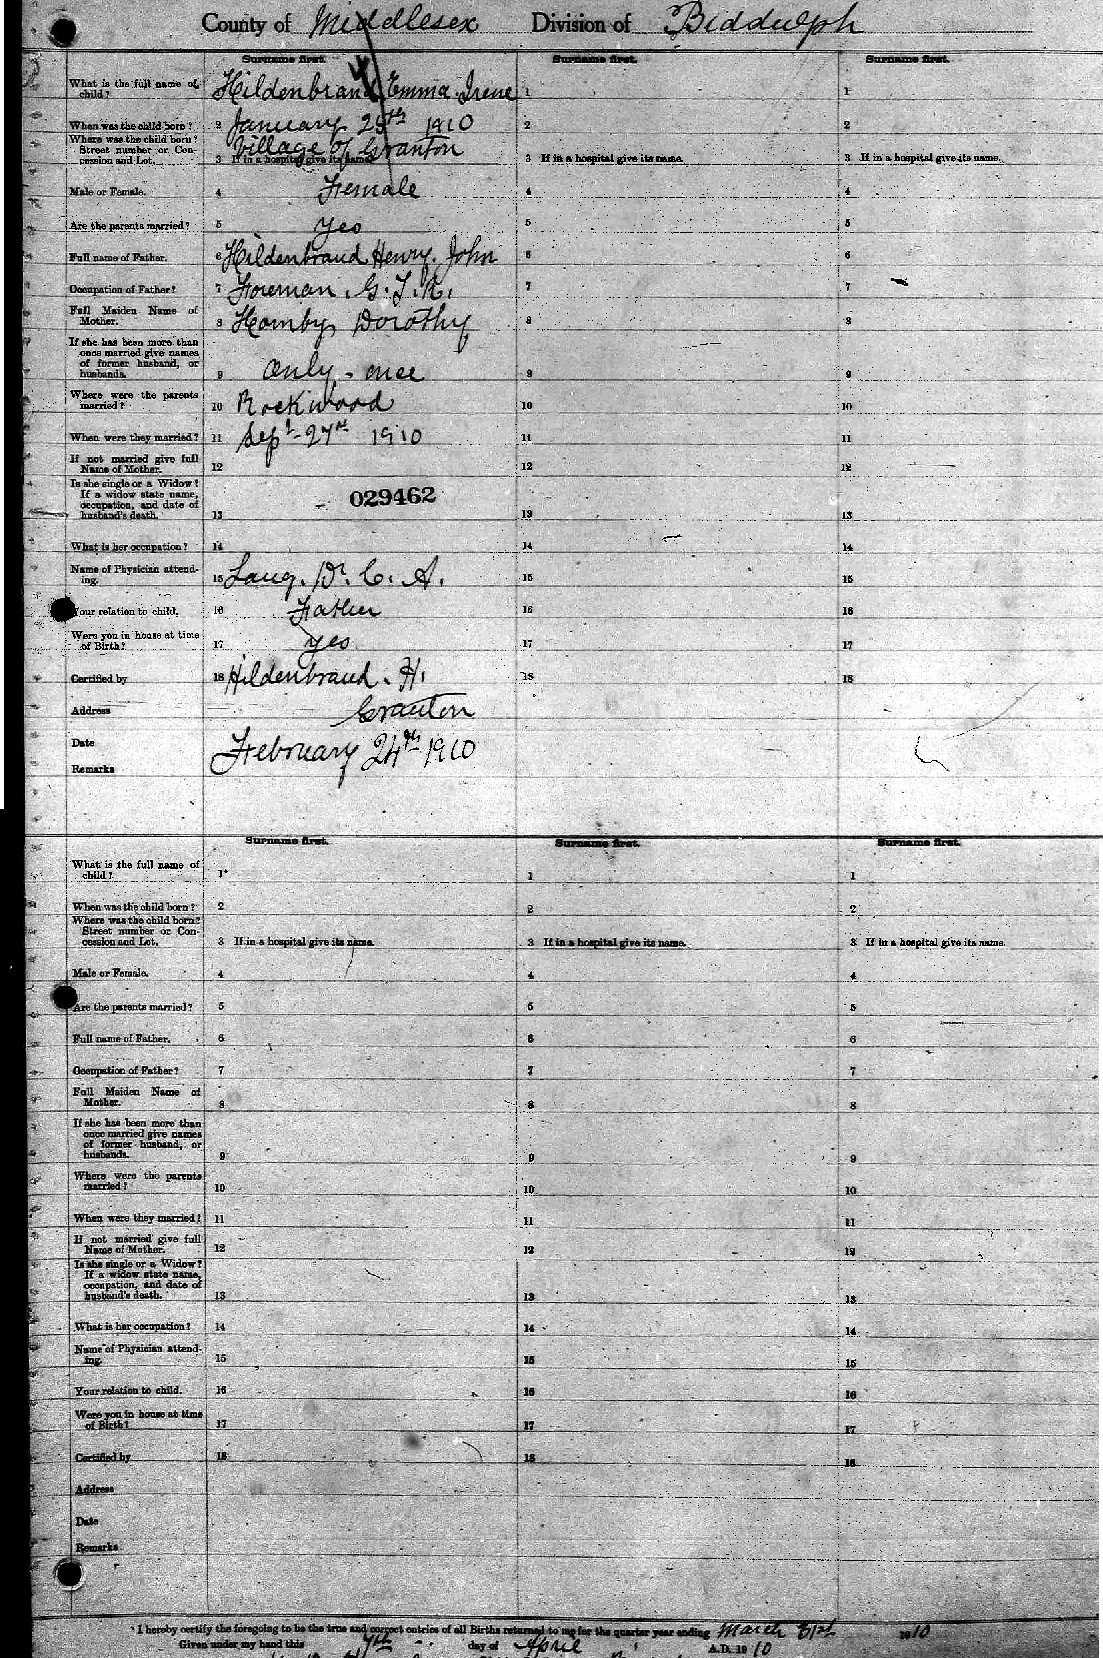 County of Middlesex Division of Biddulph
Surname first. Surname first. Surname first.
What is the full name of child? Hildenbrand Emma Irene 1 1
When was the child born? 2 January 25th 1910 2 2
Where was the child born? Street number or Concession and Lot. Village of Granton
3 If in a hospital give its name. 3 If in a hospital give its name. 3 If in a hospital give its name.
Male or Female. 4 Female 4 4
Are the parents married? 5 Yes 5 5
Full name of Father. 6 Hildenbrand Henry John 6 6
Occupation of Father? 7 Foreman. G. T. R. 7 7
Full Maiden Name of Mother. 8 Hornby, Dorothy 8 8
If she has been more than
once married give names
of former husband, or
husbands. 9 Only - once 9 9
Where were the parents married? 10 Rockwood 10 10
When were they married? 11 Sept - 27th 1910 11 11
If not married give full Name of Mother. 12 12 12
Is she single or a Widow?
If a widow state name,
occupation, and date of
husband's death. 13 029462 13 13
What is her occupation? 14 14 14
Name of Physician attending. 15 Lang. Dr. C. A. 15 15
Your relation to child. 16 Father 16 16
Were you in house at time of Birth? 17 Yes 17 17
Certified by 18 Hildenbrand. H. 18 18
Address Granton
Date February 24th 1910
Remarks
Surname first. Surname first. Surname first.
What is the full name of child? 1 1 1
When was the child born? 2 2 2
Where was the child born?
Street number or Con-
cession and Lot. 3 If in a hospital give its name. 3 If in a hospital give its name. 3 If in a hospital give its name.
Male or Female. 4 4 4
Are the parents married? 5 5 5
Full name of Father. 6 6 6
Occupation of Father? 7 7 7
Full Maiden Name of Mother. 8 8 8
If she has been more than
once married give names
of former husband, or
husbands. 9 9 9
Where were the parents married? 10 10 10
When were they married? 11 11 11
If not married give full Name of Mother. 12 12 12
Is she single or a Widow?
If a widow state name,
occupation, and date of
husband's death. 13 13 13
What is her occupation? 14 14 14
Name of Physician attending. 15 15 15
Your relation to child. 16 16 16
Were you in house at time of Birth? 17 17 17
Certified by 18 18 18
Address
Date
Remarks
I hereby certify the foregoing to be the true and correct entries of all Births returned to me for the quarter year ending March 31st 1910
Given under my hand this 7th day of April A.D. 1910